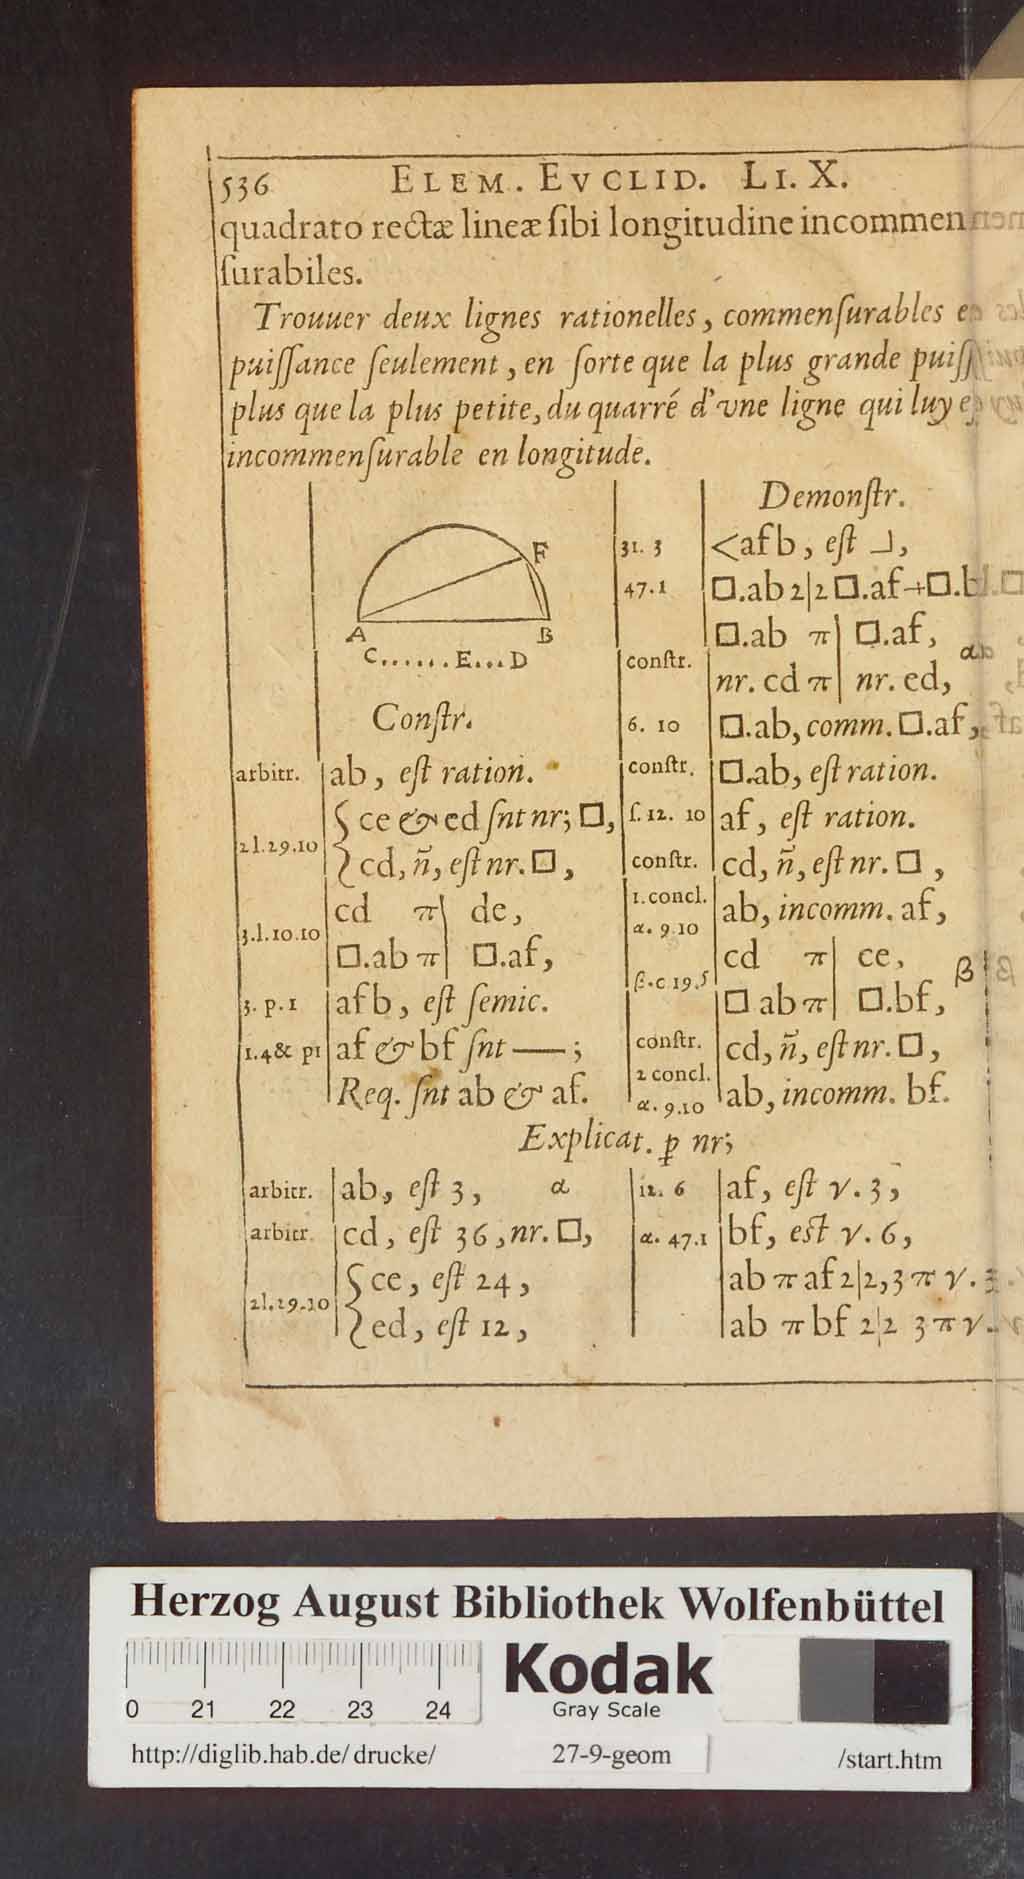 536 ELEM. EVCLID. LI. X.
quadrato rectæ lineæ ſibi longitudine incommen
ſurabiles.
Trouuer deux lignes rationelles, commenſurables e
puiſſance ſeulement, en ſorte que la plus grande puiſſ
plus que la plus petite, du quarré d'vne ligne qui luy e
incommenſurable en longitude.
F
A B
C......E...D
Conſtr.
arbitr. ab, eſt ration.
2l.29.10 { ce & ed ſnt nr; □,
cd, n̄, eſt nr. □,
3.l.10.10 cd π| de,
□.ab π| □.af,
3. p. 1 afb, eſt ſemic.
1.4& p1 af & bf ſnt —;
Req. ſnt ab & af.
Demonſtr.
31. 3 <afb, eſt ┘,
47.1 □.ab 2|2 □.af+□.b
□.ab π| □.af, α
conſtr. nr. cd π| nr. ed,
6. 10 □.ab, comm. □.af,
conſtr. □.ab, eſt ration.
ſ. 12. 10 af, eſt ration.
conſtr. cd, n̄, eſt nr. □,
1. concl.
α. 9.10 ab, incomm. af,
cd π| ce, β
β.c 19.5 □ ab π| □.bf,
conſtr. cd, n̄, eſt nr. □,
2 concl.
α. 9.10 ab, incomm. bf.
Explicat. ꝑ nr;
arbitr. ab, eſt 3, α
arbitr. cd, eſt 36, nr. □,
2l.29.10 { ce, eſt 24,
ed, eſt 12,
12. 6 af, eſt √. 3,
α. 47.1 bf, eſt √. 6,
ab π af 2|2, 3 π √. 3
ab π bf 2|2 3 π √.
Herzog August Bibliothek Wolfenbüttel
0 21 22 23 24
Kodak
Gray Scale
http://diglib.hab.de/drucke/ 27-9-geom /start.htm